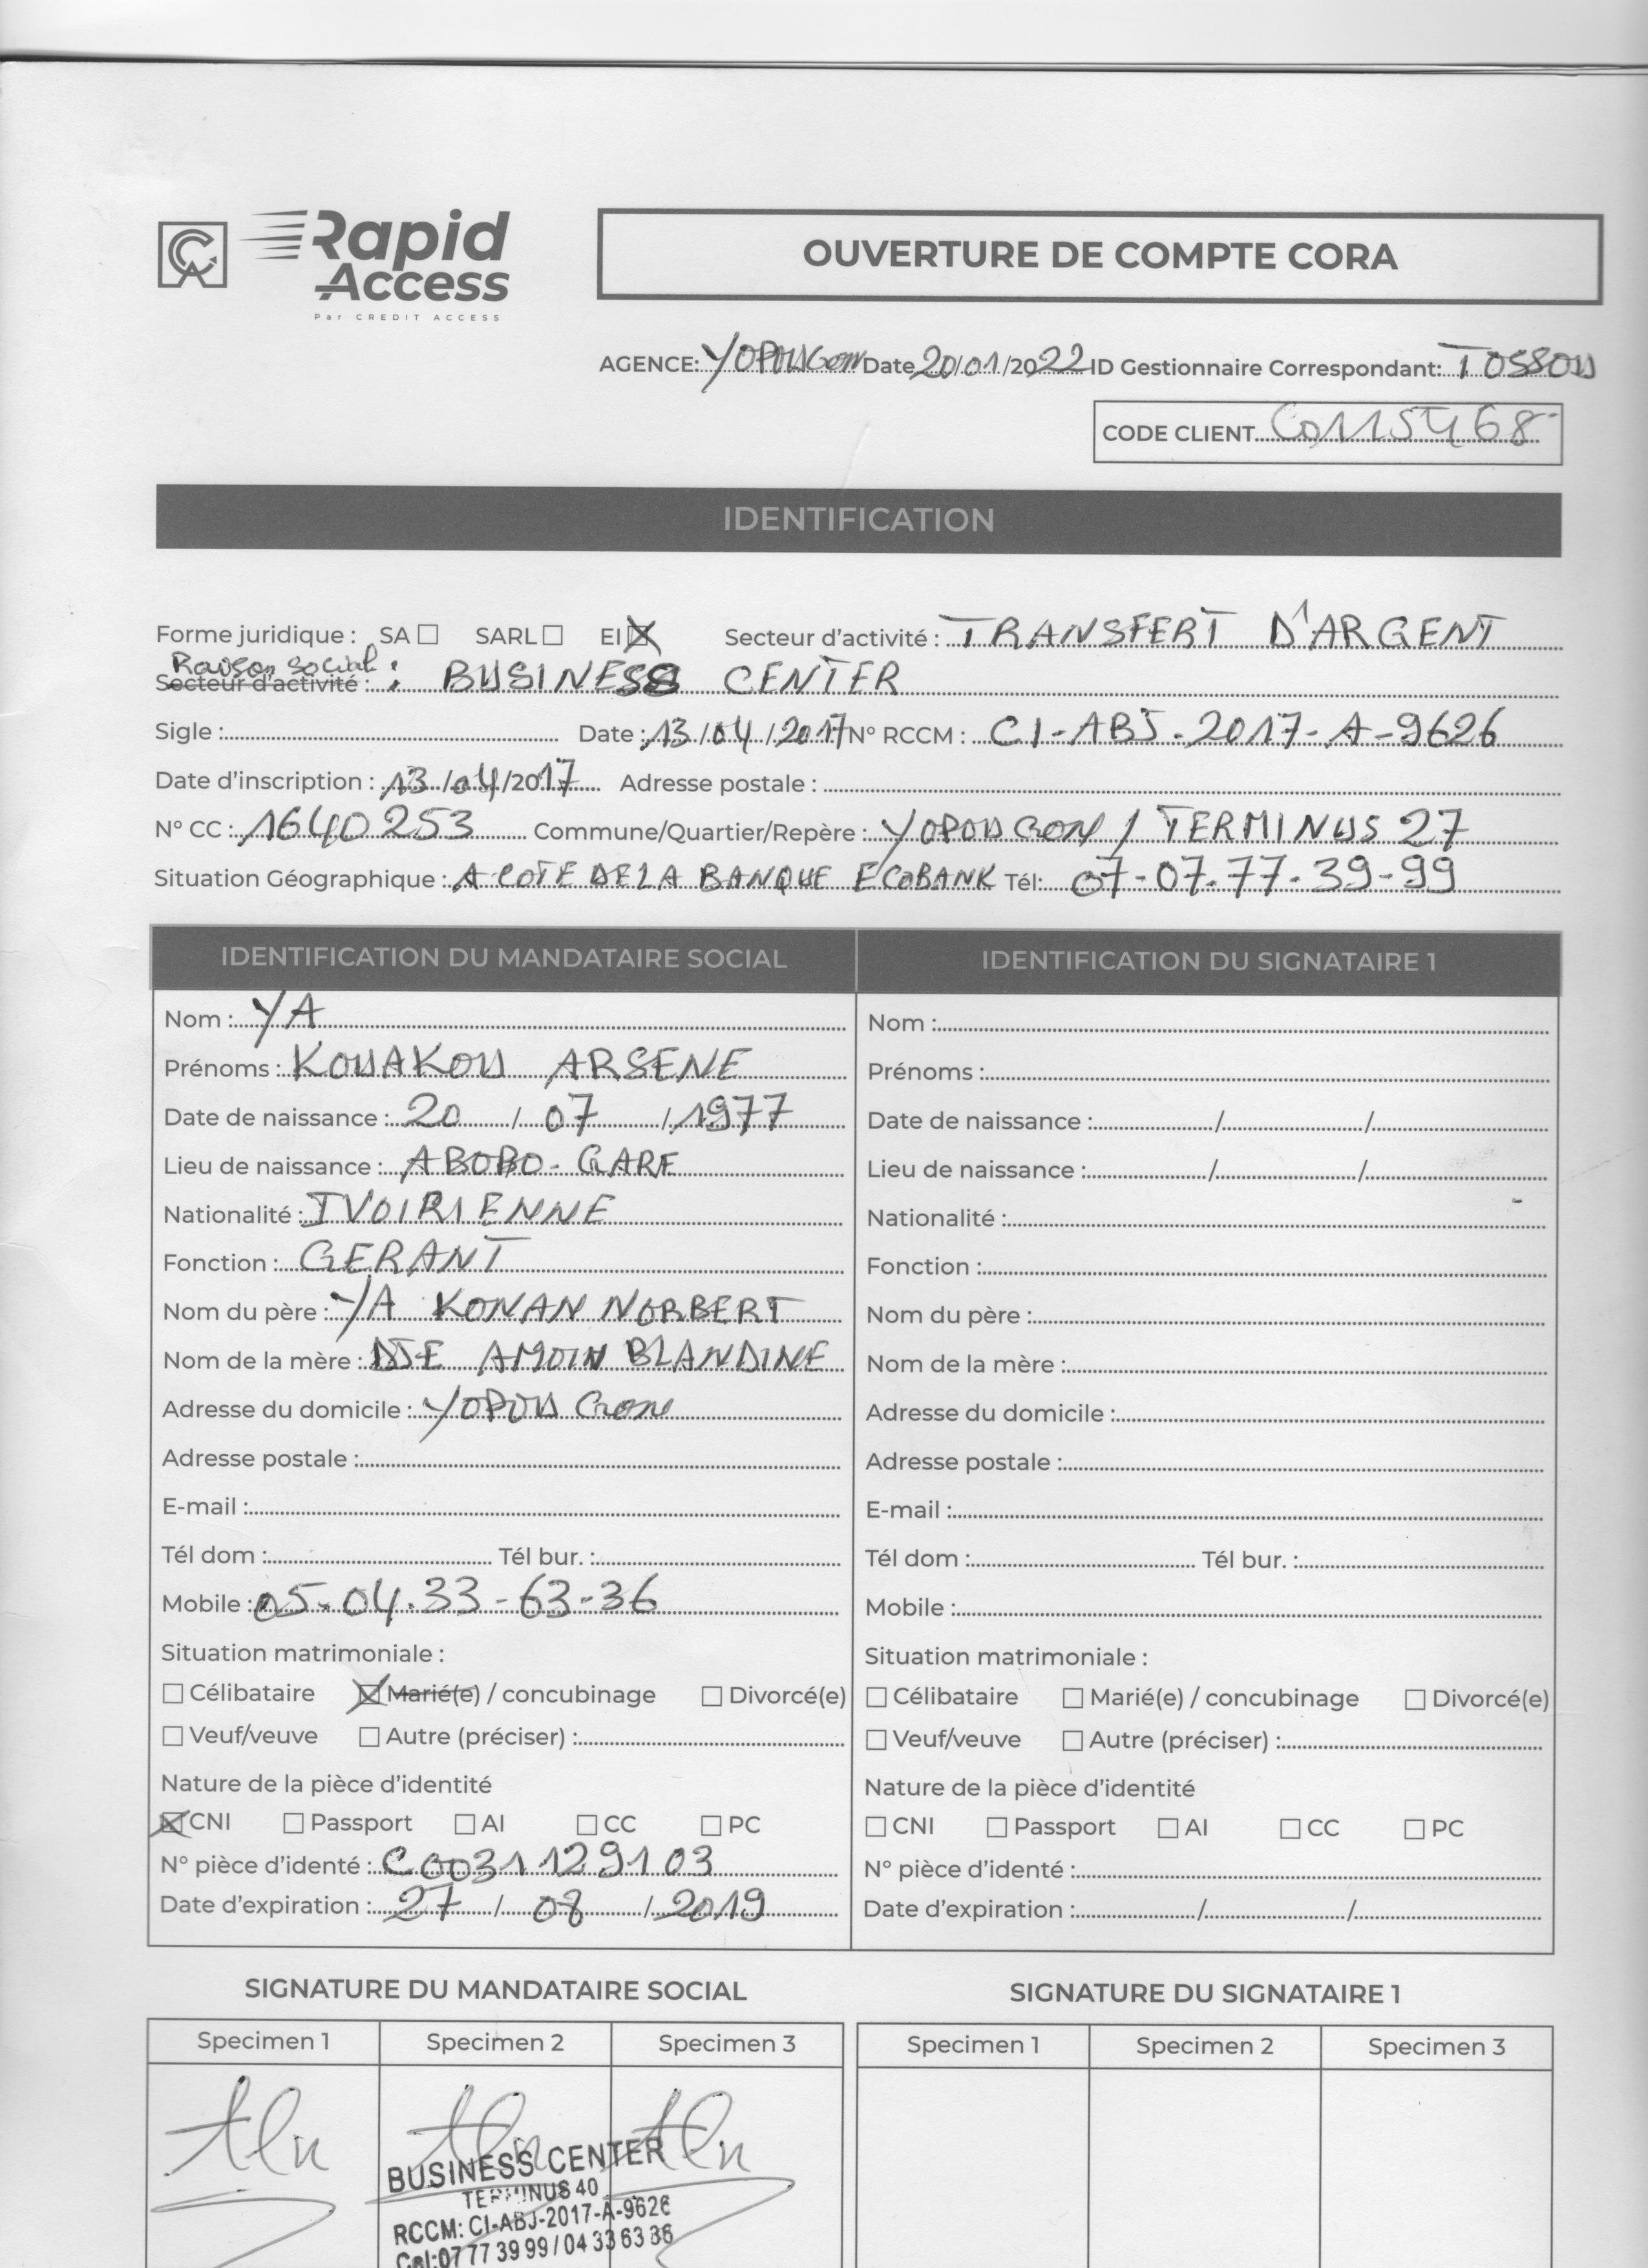 CA Rapid Access
Par CREDIT ACCESS
OUVERTURE DE COMPTE CORA
AGENCE: YOPOUGON Date 20/01/2022 ID Gestionnaire Correspondant: TOSSOU
CODE CLIENT C0115468
IDENTIFICATION
Forme juridique : SA ☐ SARL ☐ EI ☒ Secteur d'activité : TRANSFERT D'ARGENT
Raison social :
Secteur d'activité : BUSINESS CENTER
Sigle : Date : 13/04/2017 N° RCCM : CI-ABJ-2017-A-9626
Date d'inscription : 13/04/2017 Adresse postale :
N° CC : 1640253 Commune/Quartier/Repère : YOPOUGON / TERMINUS 27
Situation Géographique : A COTE DE LA BANQUE ECOBANK Tél: 07-07.77-39-99
IDENTIFICATION DU MANDATAIRE SOCIAL
Nom : YA
Prénoms : KOUAKOU ARSENE
Date de naissance : 20 / 07 / 1977
Lieu de naissance : ABOBO-GARE
Nationalité : IVOIRIENNE
Fonction : GERANT
Nom du père : YA KONAN NORBERT
Nom de la mère : AMOIN BLANDINE
Adresse du domicile : YOPOUGON
Adresse postale :
E-mail :
Tél dom : Tél bur. :
Mobile : 05-04.33-63-36
Situation matrimoniale :
☐ Célibataire ☒ Marié(e) / concubinage ☐ Divorcé(e)
☐ Veuf/veuve ☐ Autre (préciser) :
Nature de la pièce d'identité
☒ CNI ☐ Passport ☐ AI ☐ CC ☐ PC
N° pièce d'identé : C0031129103
Date d'expiration : 27 / 08 / 2019
IDENTIFICATION DU SIGNATAIRE 1
Nom :
Prénoms :
Date de naissance : / /
Lieu de naissance : / /
Nationalité :
Fonction :
Nom du père :
Nom de la mère :
Adresse du domicile :
Adresse postale :
E-mail :
Tél dom : Tél bur. :
Mobile :
Situation matrimoniale :
☐ Célibataire ☐ Marié(e) / concubinage ☐ Divorcé(e)
☐ Veuf/veuve ☐ Autre (préciser) :
Nature de la pièce d'identité
☐ CNI ☐ Passport ☐ AI ☐ CC ☐ PC
N° pièce d'identé :
Date d'expiration : / /
SIGNATURE DU MANDATAIRE SOCIAL
Specimen 1 Specimen 2 Specimen 3
BUSINESS CENTER
TERMINUS 40
RCCM: CI-ABJ-2017-A-9626
Cel:07 77 39 99 / 04 33 63 36
SIGNATURE DU SIGNATAIRE 1
Specimen 1 Specimen 2 Specimen 3